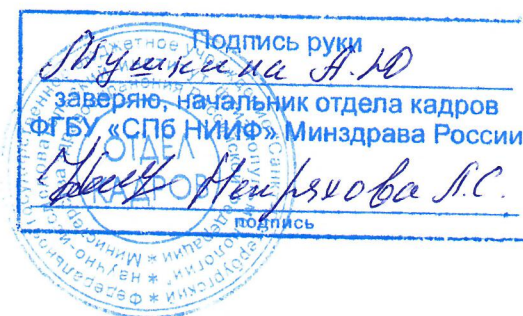 Подпись руки
Мушкина А.Ю
заверяю, начальник отдела кадров
ФГБУ «СПб НИИФ» Минздрава России
Непряхова Л.С.
подпись
ОТДЕЛ
КАДРОВ